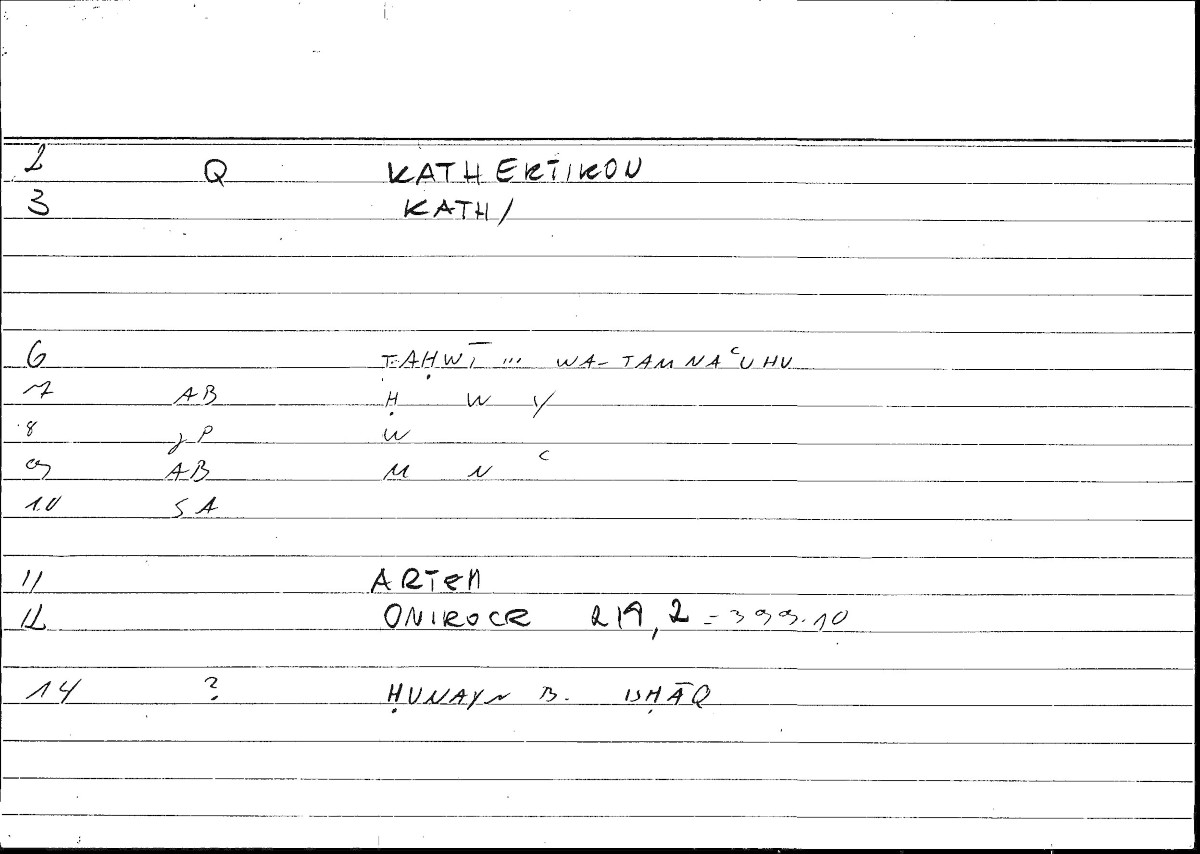 2 Q KATHEKTIKON
3 KATH/
6 TAḤWĪ ... WA-TAMNAʿUHU
7 AB Ḥ W Y
8 jP W
9 AB M N ʿ
10 SA
11 ARTEM
12 ONIROCR 219,2 = 399.10
14 ? ḤUNAYN B. ISḤĀQ